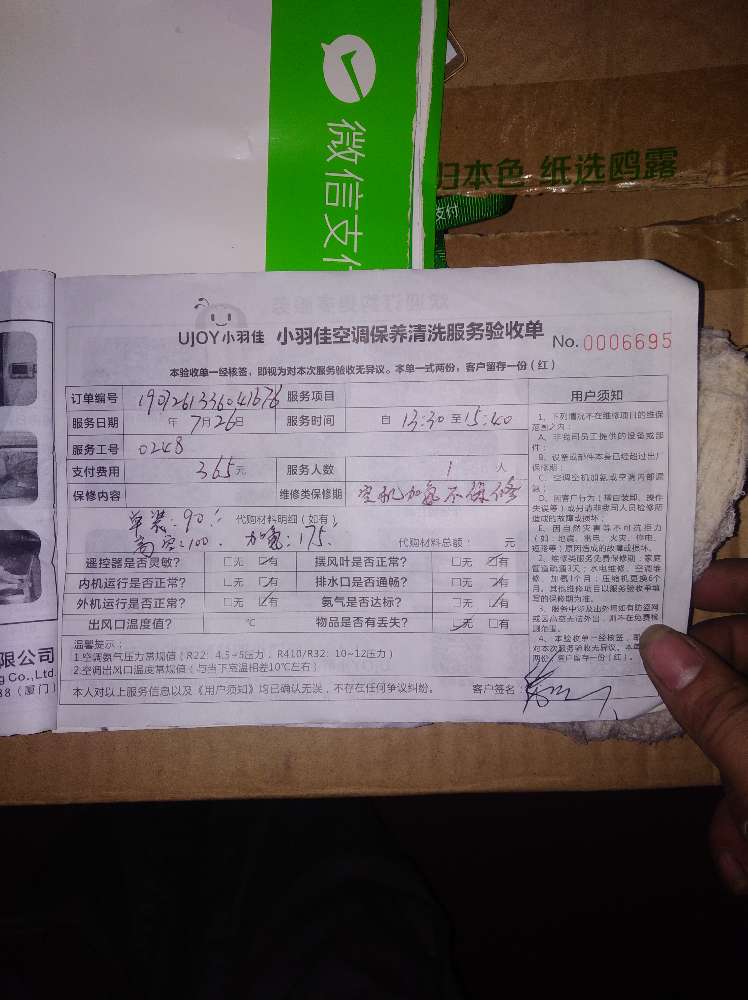 微信支付
归本色 纸选鸥露
支付
UJOY小羽佳 小羽佳空调保养清洗服务验收单 No.0006695
本验收单一经核签，即视为对本次服务验收无异议。本单一式两份，客户留存一份（红）
订单编号 服务项目
服务日期 年7月26日 服务时间 自13:30至15:40
服务工号 0248
支付费用 365元 服务人数 1人
保修内容 维修类保修期 空机加氟不保修
单装:90 代购材料明细（如有）
高空:100 加氟:175 代购材料总额： 元
遥控器是否灵敏? □无 ☑有 摆风叶是否正常? □无 ☑有
内机运行是否正常? □无 ☑有 排水口是否通畅? □无 ☑有
外机运行是否正常? □无 ☑有 氨气是否达标? □无 ☑有
出风口温度值? ℃ 物品是否有丢失? ☑无 □有
温馨提示：
1.空调氨气压力常规值（R22：4.5~5压力，R410/R32：10~12压力）
2.空调出风口温度常规值（与当下室温相差10℃左右）
本人对以上服务信息以及《用户须知》均已确认无误，不存在任何争议纠纷。 客户签名：
用户须知
1、下列情况不在维修项目的维保
范围之内：
A、非我司员工提供的设备或部
件；
B、设备或部件本身已经超过出厂
保修期；
C、空调空机加氨或空调内部漏
D、因客户行为（擅自装卸、操作
失误等）或另请非我司人员检修所
造成的故障或损坏；
E、因自然灾害等不可抗拒力
（如：地震、雷电、火灾、停电、
短路等）原因造成的故障或损坏。
2、维修类服务免费保修期：家庭
管道疏通3天；水电维修、空调维
修、加氨1个月；压缩机更换6个
月，其他维修项目以服务验收单填
写的保修期为准。
3、服务中涉及出外墙如有防盗网
或因高空无法外出，则不在免费检
测范围。
4、本验收单一经核签，
对本次服务验收无异议。本单
两份，客户留存一份（红）。
限公司
g Co.,Ltd.
（厦门）